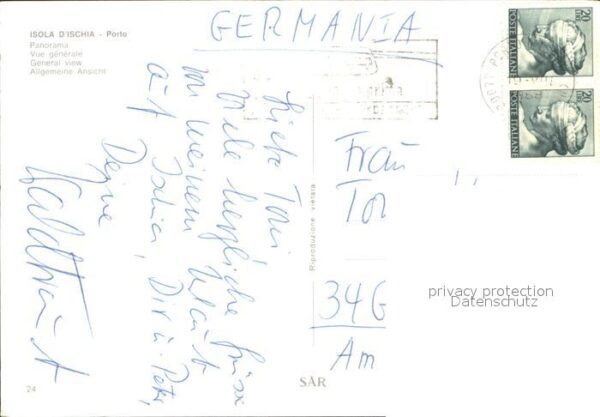 GERMANIA
ISOLA D'ISCHIA - Porto
Panorama
Vue générale
General view
Allgemeine Ansicht
POSTE ITALIANE
20 LIRE
POSTE ITALIANE
20 LIRE
Liebe Toni
Viele herzliche Grüsse
von meinem Urlaub
auf Ischia, Dir u. Peter,
Deine
Waltraut
Riproduzione vietata
Frau
Tor
34G
Am
privacy protection
Datenschutz
24
SAR